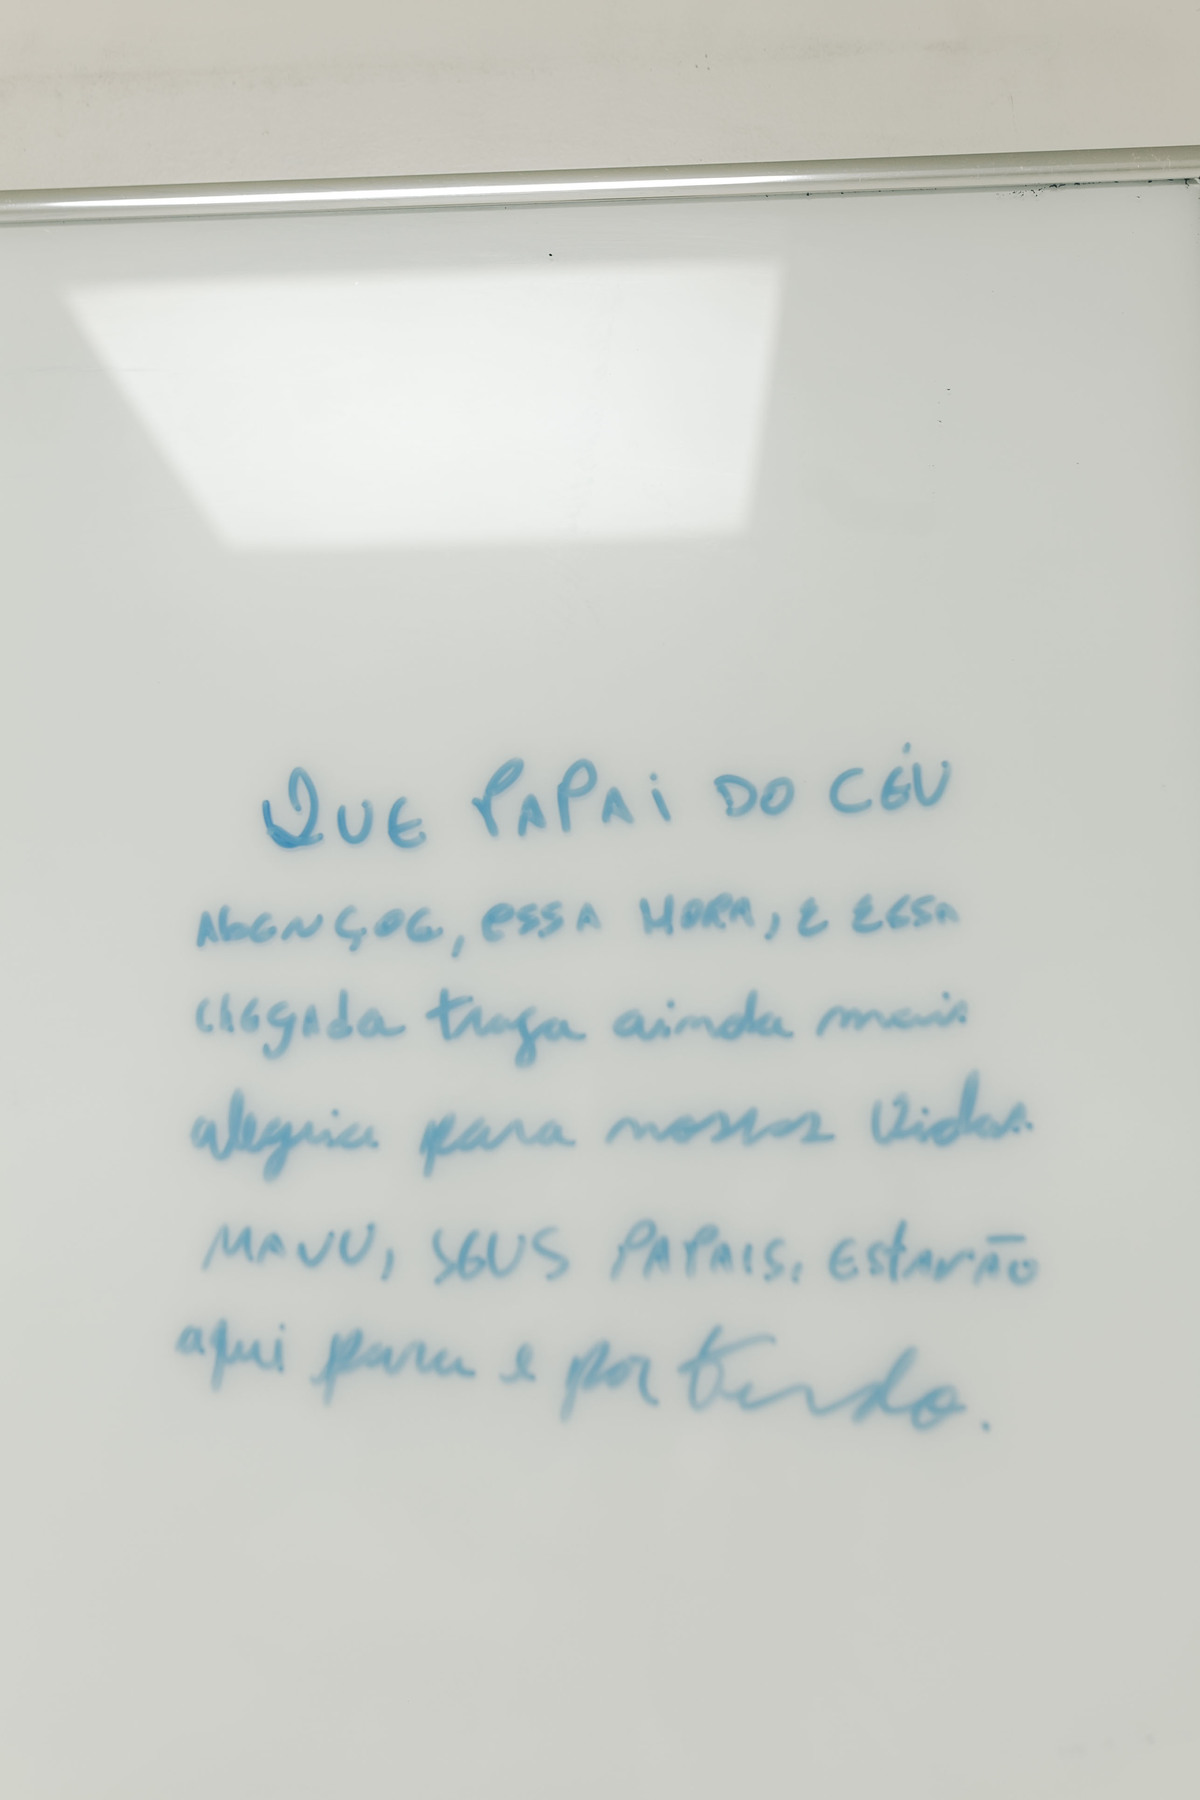 QUE PAPAI DO CÉU
ABENÇOE, ESSA HORA, E ESSA
chegada traga ainda mais
alegria para nossas vidas.
MAVU, SEUS PAPAIS, ESTARÃO
aqui para e por tudo.